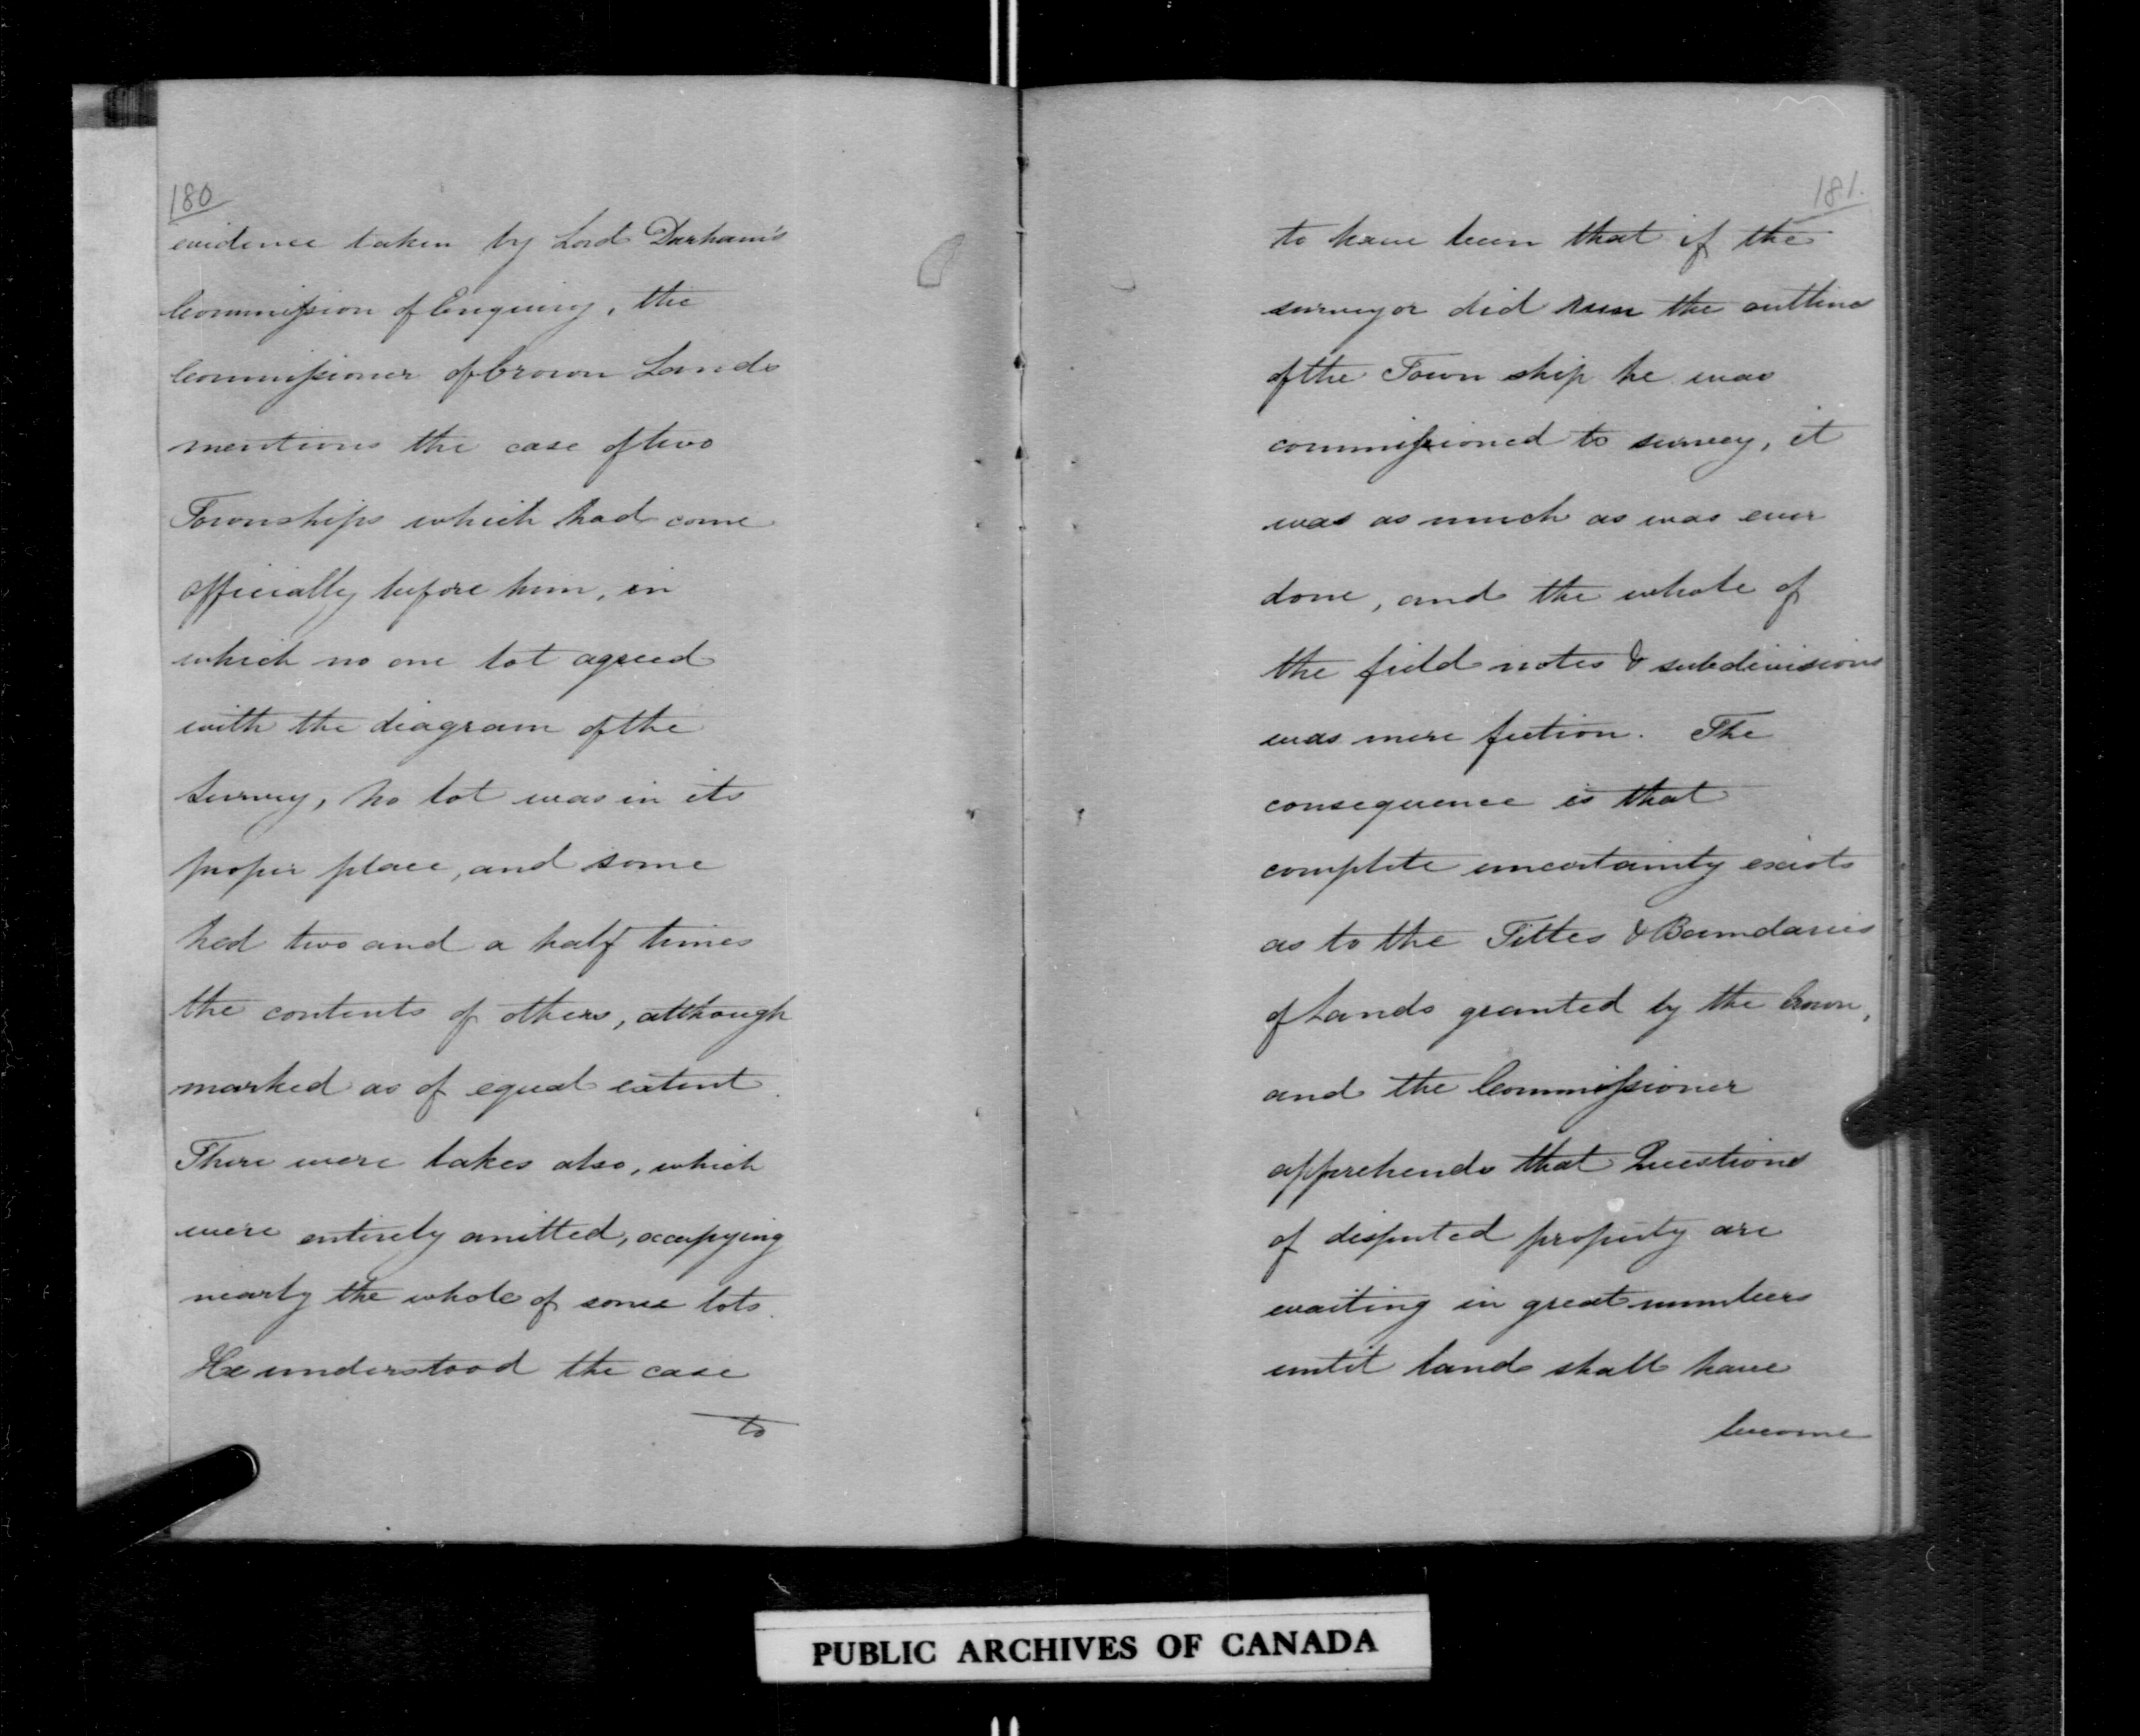 180
evidence taken by Lord Durham's
Commission of Enquiry, the
Commissioner of Crown Lands
mentions the case of two
Townships which had come
officially before him, in
which no one lot agreed
with the diagram of the
survey, no lot was in its
proper place, and some
had two and a half times
the contents of others, although
marked as of equal extent.
There were lakes also, which
were entirely omitted, occupying
nearly the whole of some lots.
He understood the case
to
181.
to have been that if the
surveyor did run the outline
of the Town ship he was
commissioned to survey, it
was as much as was ever
done, and the whole of
the field notes & subdivisions
was mere fiction. The
consequence is that
complete uncertainty exists
as to the Titles & Boundaries
of Lands granted by the Crown,
and the Commissioner
apprehends that Questions
of disputed property are
waiting in great numbers
until land shall have
become
PUBLIC ARCHIVES OF CANADA